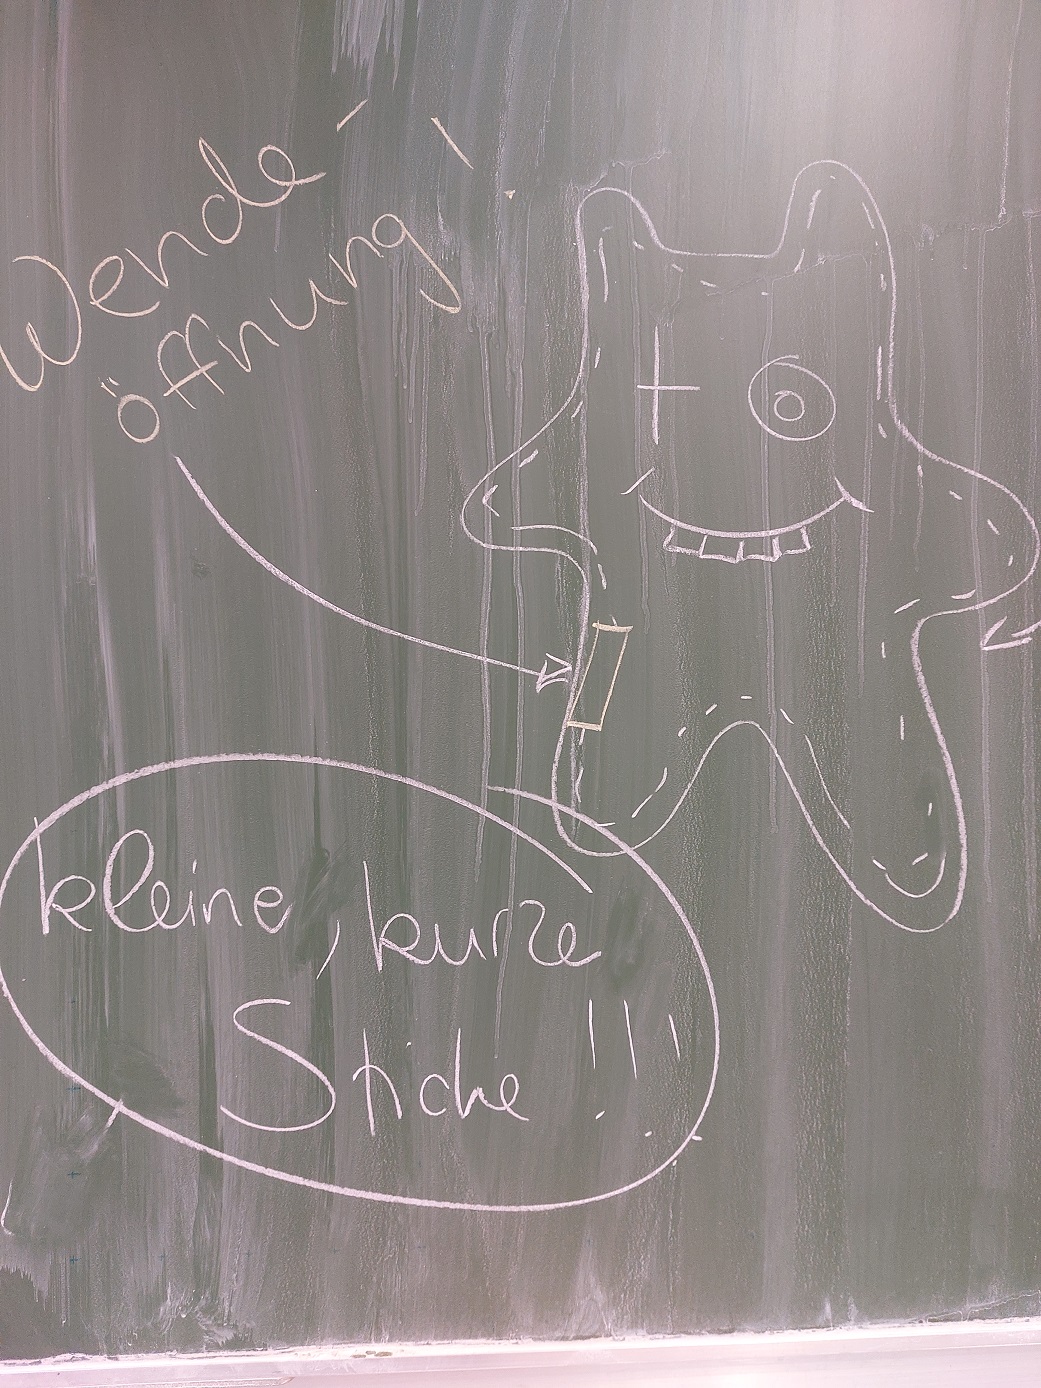 Wende
öffnung
kleine, kurze
Stiche !!!